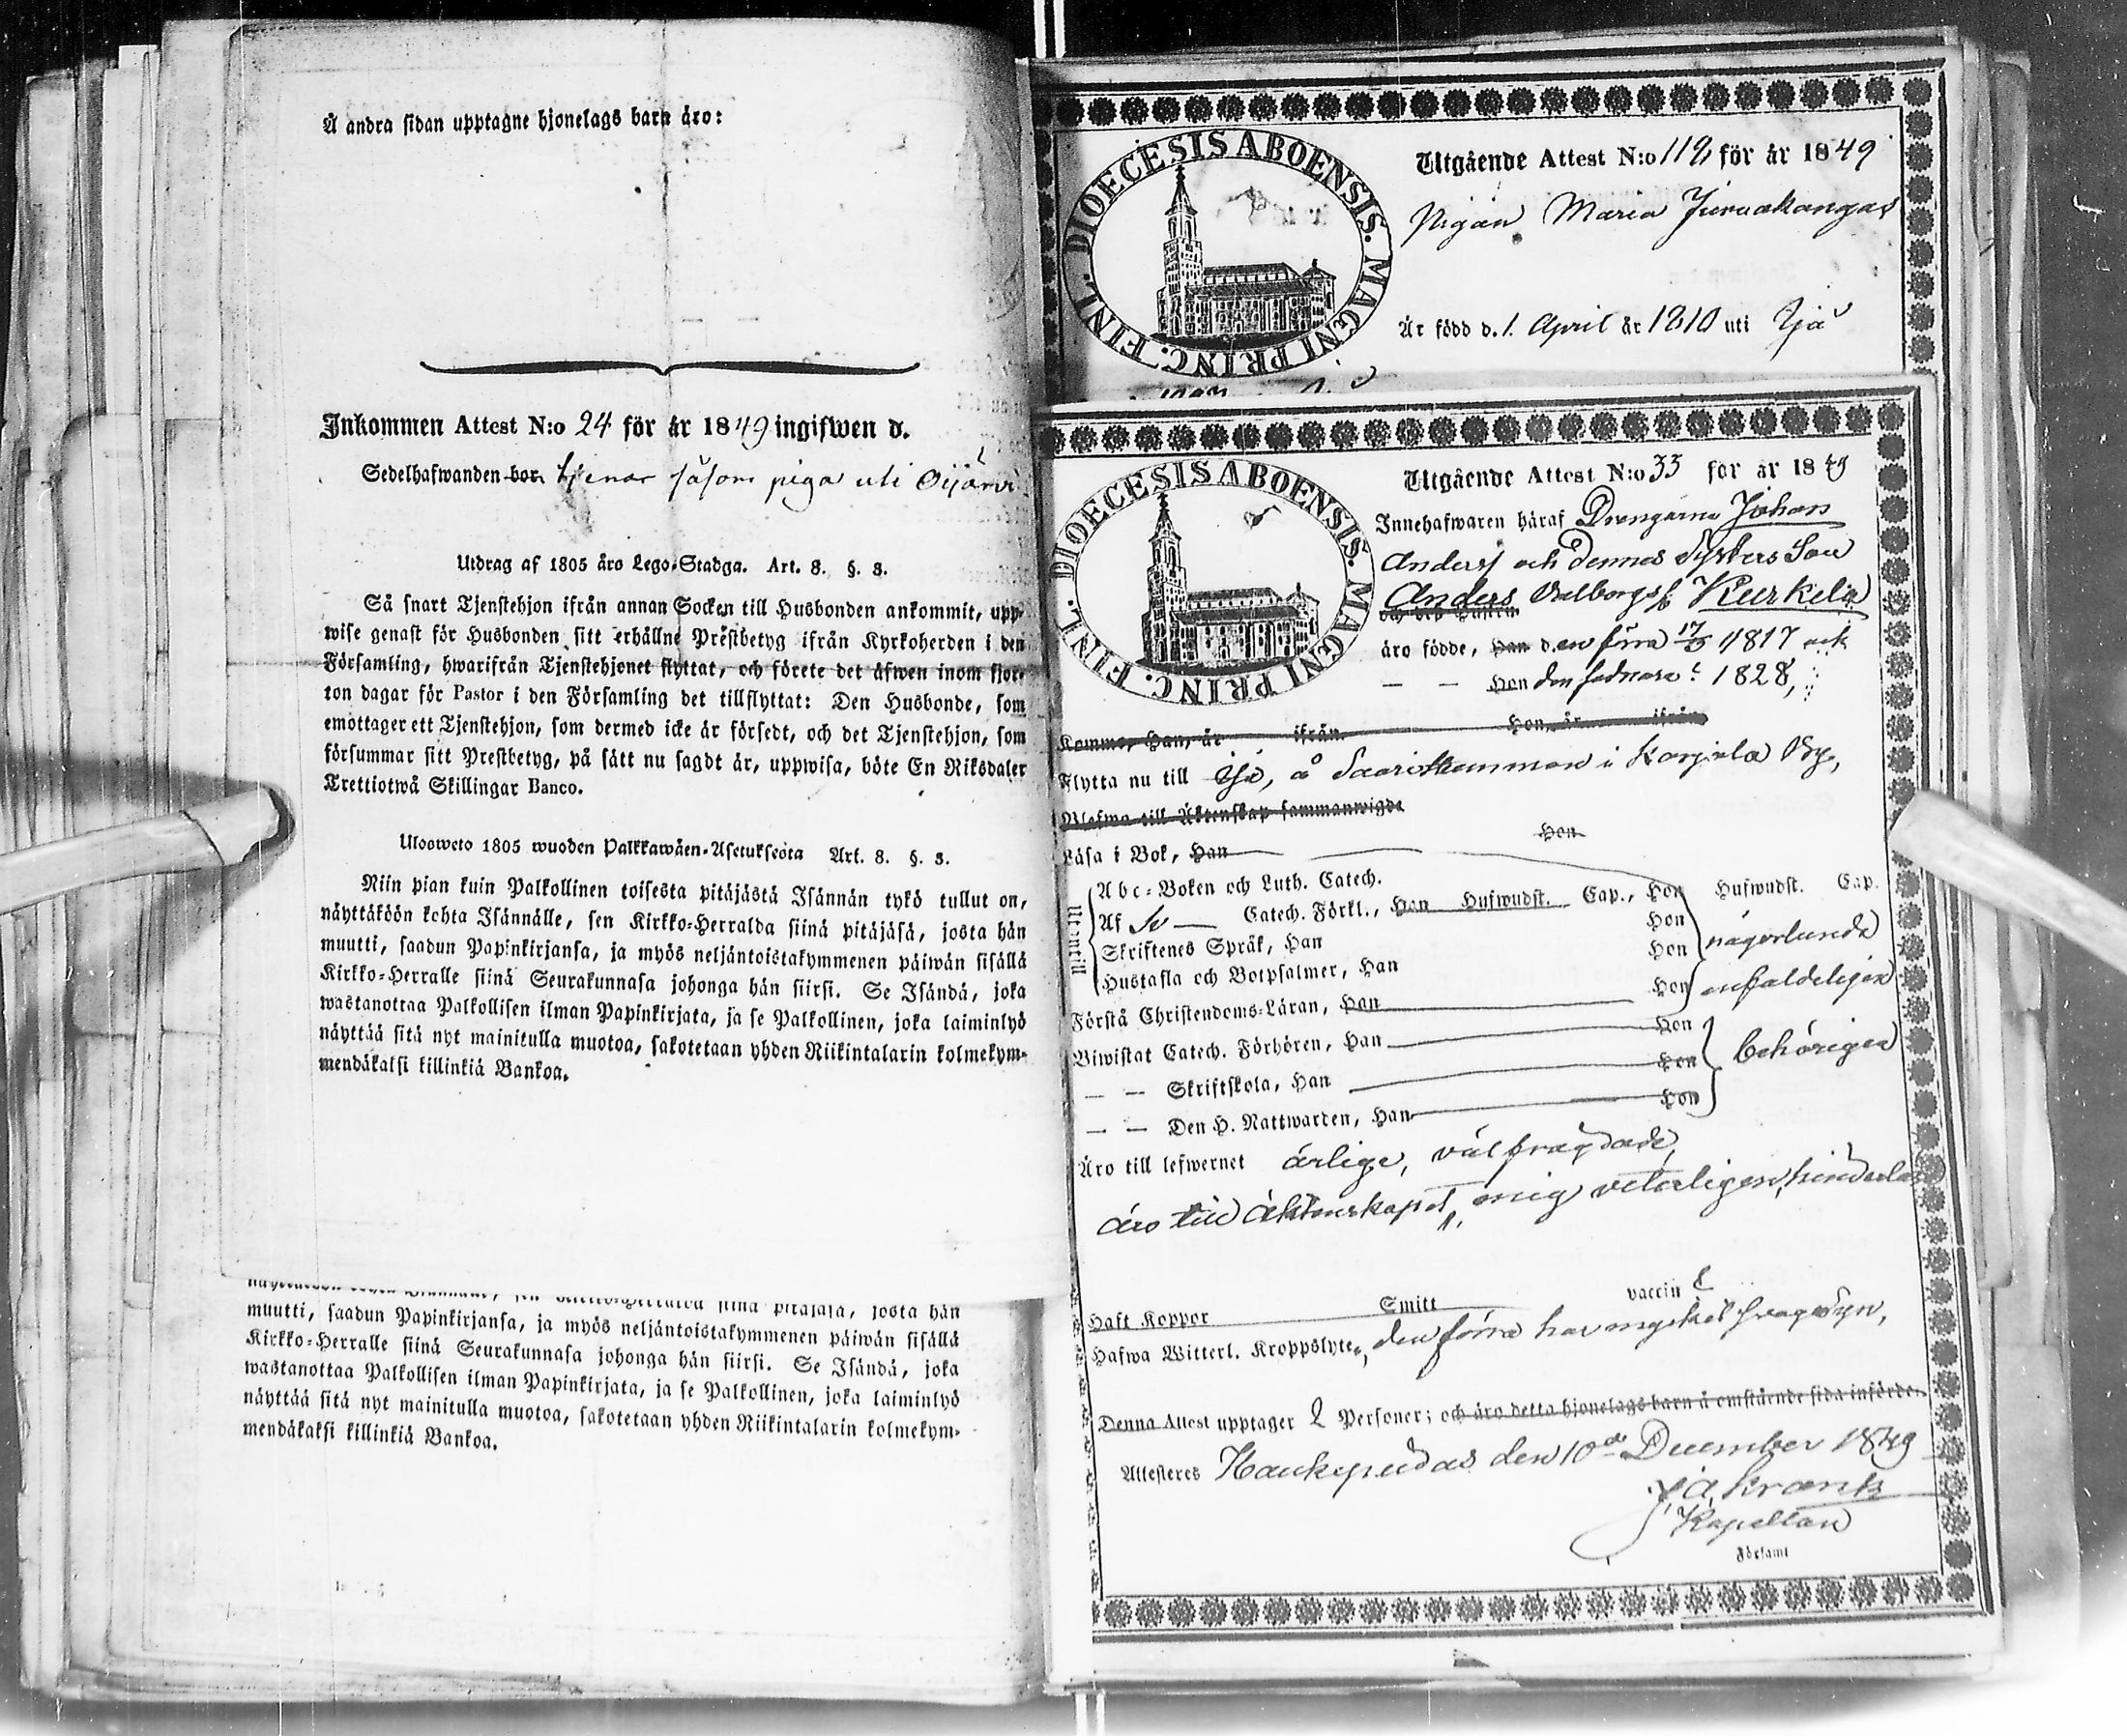 Å andra sidan upptagne hjonelags barn äro:
Inkommen Attest N:o 24 för år 1849 ingifwen d.
Sedelhafwanden bor tjenar såsom piga uti Oijärvi
Utdrag af 1805 års Lego-Stadga. Art. 8. §. 3.
Så snart Tjenstehjon ifrån annan Socken till Husbonden ankommit, upp-
wise genast för Husbonden sitt erhållne Prestbetyg ifrån Kyrkoherden i den
Församling, hwarifrån Tjenstehjonet flyttat, och förete det äfwen inom fjor-
ton dagar för Pastor i den Församling det tillflyttat: Den Husbonde, som
emottager ett Tjenstehjon, som dermed icke är försedt, och det Tjenstehjon, som
försummar sitt Prestbetyg, på sätt nu sagdt är, uppwisa, böte En Riksdaler
Trettiotwå Skillingar Banco.
Ulosweto 1805 wuoden Palkkawäen-Asetuksesta Art. 8. §. 3.
Niin pian kuin Palkollinen toisesta pitäjästä Isännän tykö tullut on,
näyttäköön kohta Isännälle, sen Kirkko-Herralda siinä pitäjäsä, josta hän
muutti, saadun Papinkirjansa, ja myös neljäntoistakymmenen päiwän sisällä
Kirkko-Herralle siinä Seurakunnasa johonga hän siirsi. Se Isändä, joka
wastanottaa Palkollisen ilman Papinkirjata, ja se Palkollinen, joka laiminlyö
näyttää sitä nyt mainitulla muotoa, sakotetaan yhden Riikintalarin kolmekym-
mendäkaksi killinkiä Bankoa.
muutti, saadun Papinkirjansa, ja myös neljäntoistakymmenen päiwän sisällä
Kirkko-Herralle siinä Seurakunnasa johonga hän siirsi. Se Isändä, joka
wastanottaa Palkollisen ilman Papinkirjata, ja se Palkollinen, joka laiminlyö
näyttää sitä nyt mainitulla muotoa, sakotetaan yhden Riikintalarin kolmekym-
mendäkaksi killinkiä Bankoa.
DIOECESIS ABOENSIS. MAGNI PRINC. FINL.
Utgående Attest N:o 119, för år 1849
Pigan Maria Jurvakangas
Är född d. 1. April år 1810 uti Ijå
DIOECESIS ABOENSIS. MAGNI PRINC. FINL.
Utgående Attest N:o 33 för år 1849
Innehafwaren häraf Drengarna Johan
Anderss och dennes Systers Son
Anders Valborgss Kurkela
och des Hustru
äro födde, Han den förra 17/3 1817 och
— — Hon den sednare 1828,
Komne, Han, år ifrån Hon, år ifrån
Flytta nu till Ijå, å Saari hemman i Karjala By,
Blefwo till Äktenskap sammanwigde
Läsa i Bok, Han Hon
Utantill
Abc-Boken och Luth. Catech.
Af Sv — Catech. Förkl., Han Hufwudst. Cap., Hon Hufwudst. Cap.
Skriftenes Språk, Han Hon någorlunda
Hustafla och Botpsalmer, Han Hon
Förstå Christendoms-Läran, Han Hon enfaldeligen
Biwistat Catech. Förhören, Han Hon
— — Skriftskola, Han Hon behörigen
— — Den H. Nattwarden, Han Hon
Äro till lefwernet ärlige, välfrägdade,
äro till äktenskapet, mig veterligen, hinderlösa
Haft Koppor Smitt vaccin
Hafwa Witterl. Kroppslyte, den förra har mycket svag syn,
Denna Attest upptager 2 Personer; och äro detta hjonelags barn å omstående sida införde.
Attesteres Haukipudas den 10de December 1849
J. A. Krank
Kapellan
Församl